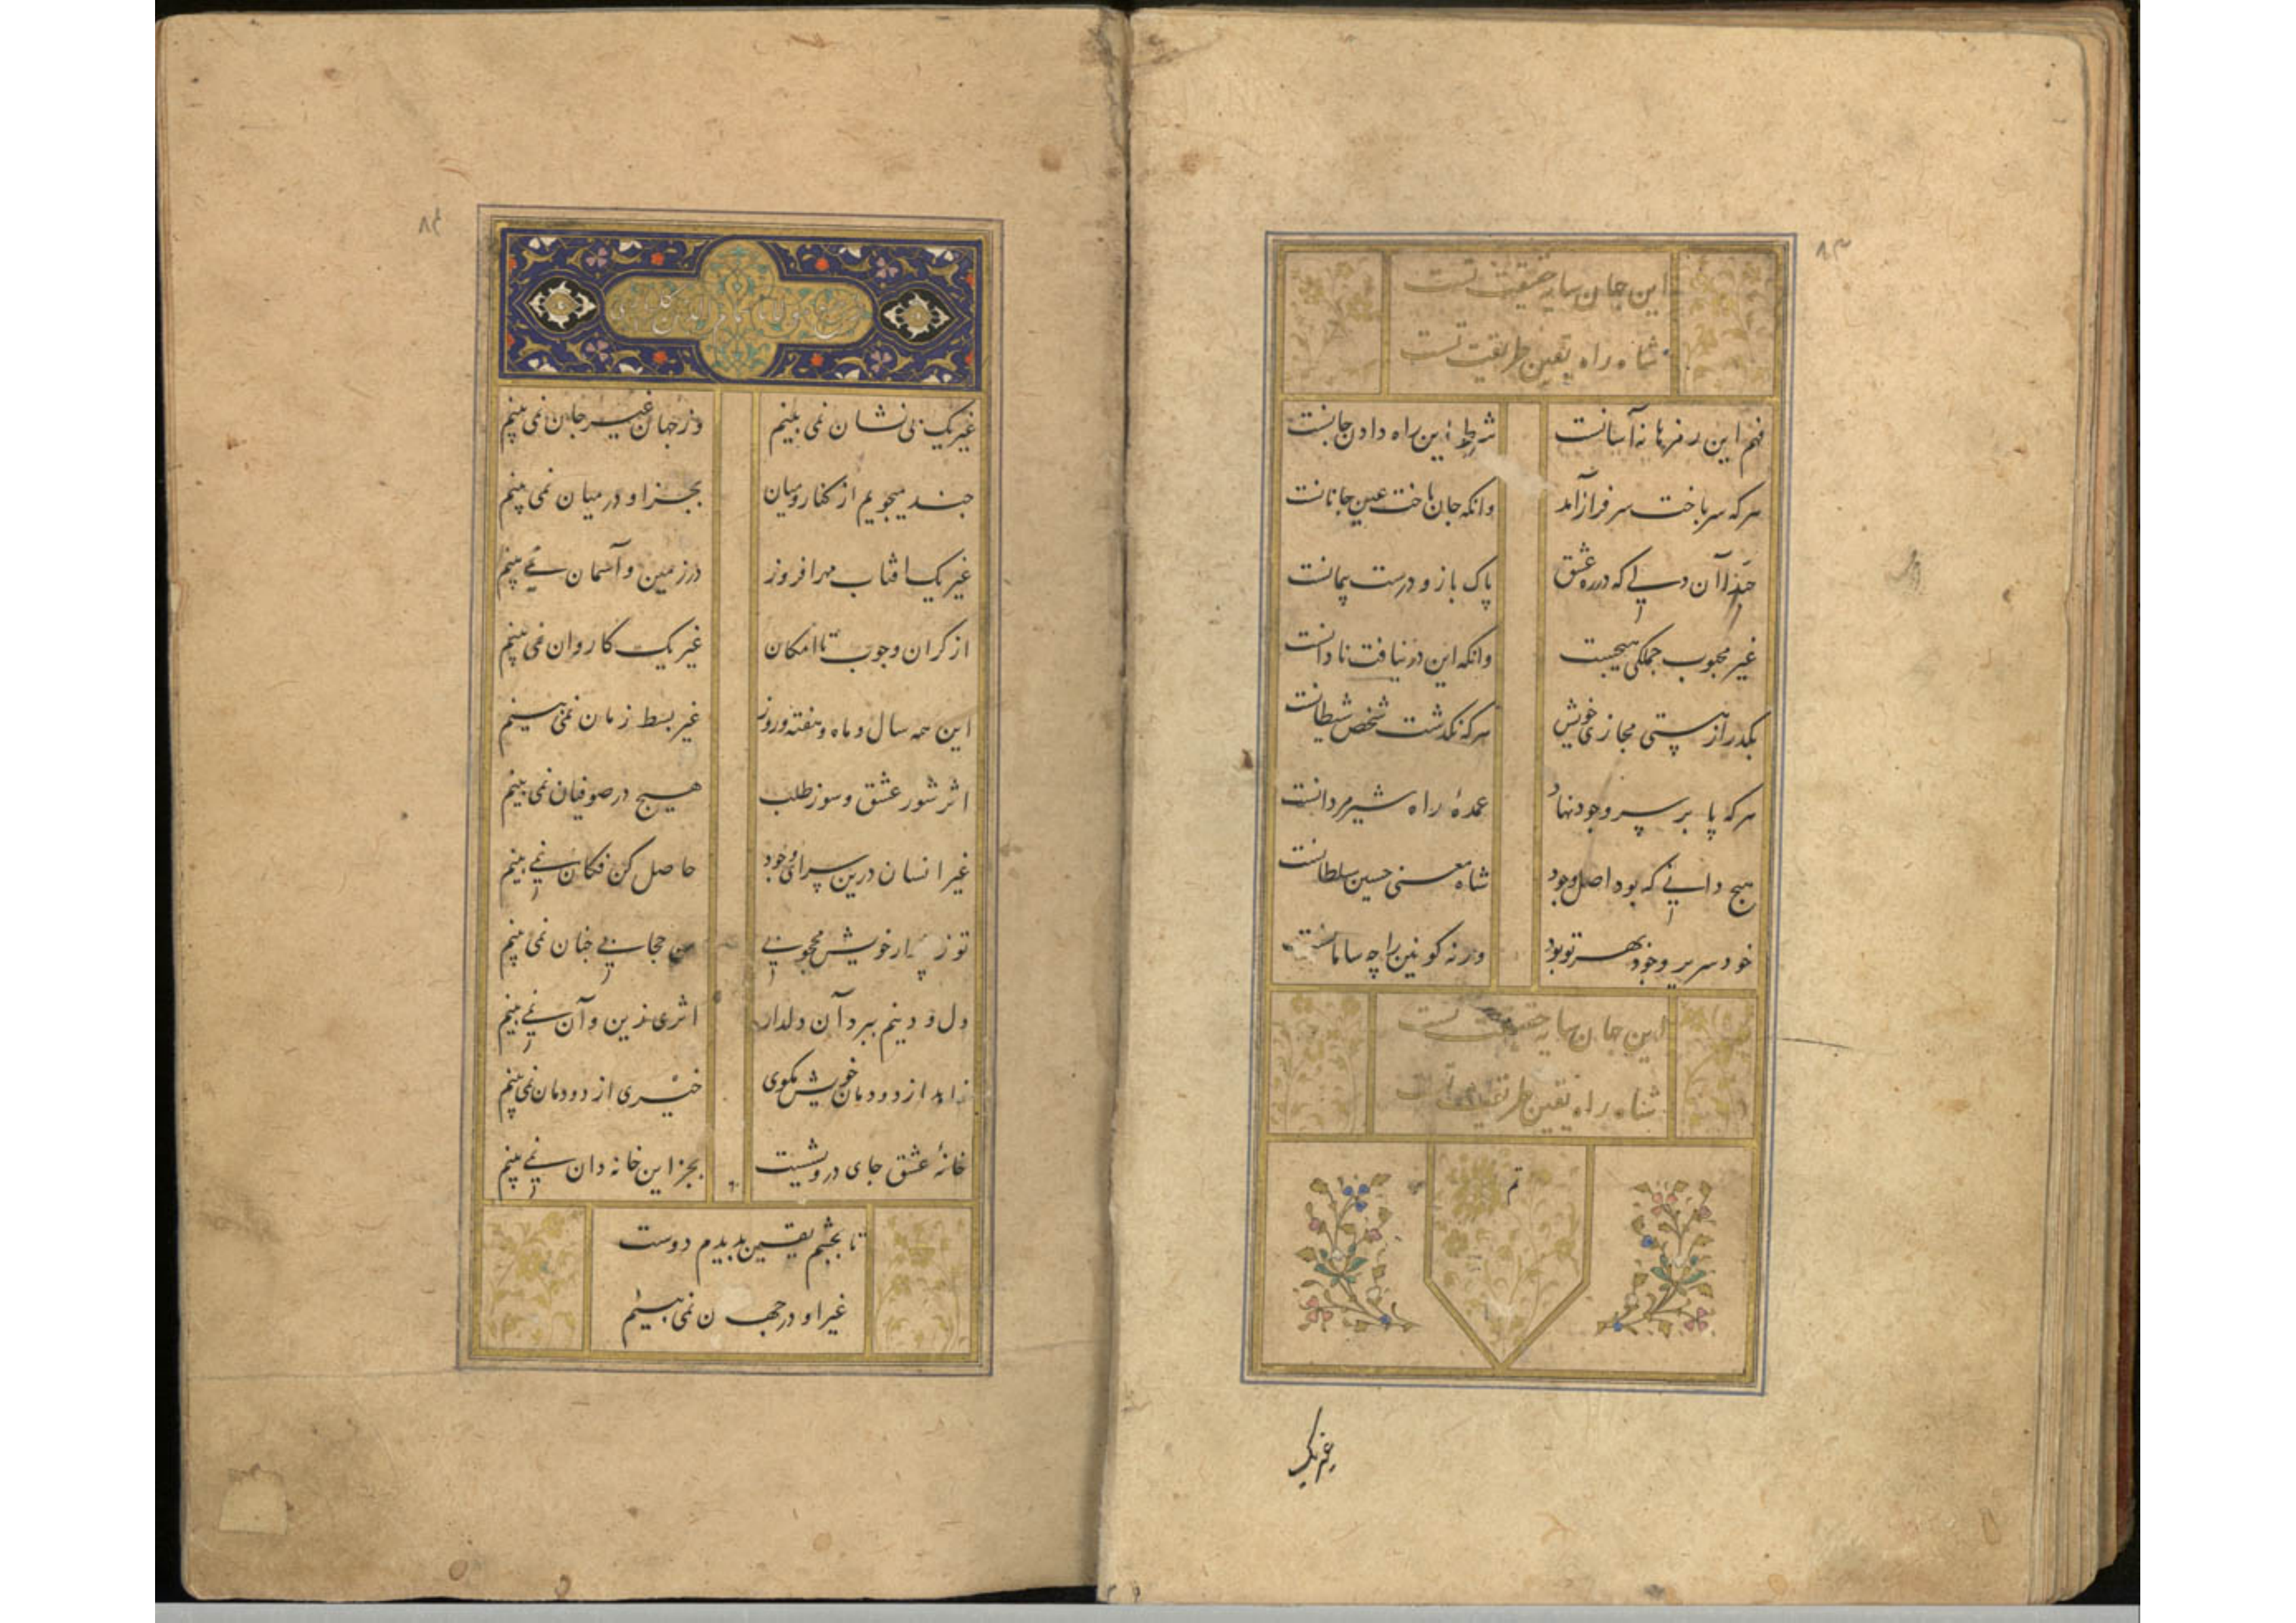 ۸۳
این جان سایه حقیقت تست
شاه راه یقین طریقت تست
فهم این رمزها نه آسانست شرط این راه دادن جانست
هرکه سر باخت سر فراز آمد وانکه جان باخت عین جانانست
حبذا آن دلی که در ره عشق پاک باز و درست پیمانست
غیر محبوب جملکی هیچست وانکه این در نیافت نادانست
بکذر از هستی مجازی خویش هرکه نکذشت شخص شیطانست
هرکه پا بر سر وجود نهاد عمدهٔ راه شیر مردانست
هیچ دانی که بود اصل وجود شاه معنی حسین سلطانست
خود سریر وجود بهر تو بود ورنه کونین را چه سامانست
این جان سایه حقیقت تست
شاه راه یقین طریقت تست
تم
غیر یک
۸۴
غیر یک بی نشان نمی بینم وز جهان غیر جان نمی بینم
جند میجویم از کنار و میان بجز او در میان نمی بینم
غیر یک افتاب مهر افروز در زمین و آسمان نمی بینم
از کران وجوب تا امکان غیر یک کاروان نمی بینم
این همه سال و ماه و هفته و روز غیر بسط زمان نمی بینم
اثر شور عشق و سوز طلب هیچ در صوفیان نمی بینم
غیر انسان درین سرای وجود حاصل کن فکان نمی بینم
تو ز پندار خویش محجوبی من حجابی جنان نمی بینم
دل و دینم ببرد آن دلدار اثری زین و آن نمی بینم
زاهد از دودمان خویش مکوی خبری از دودمان نمی بینم
خانهٔ عشق جای درویشیست بجز این خانه دان نمی بینم
تا بچشم یقین بدیدم دوست
غیر او در جهان نمی بینم